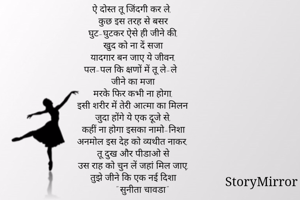 ऐ दोस्त तू जिंदगी कर ले,
कुछ इस तरह से बसर
घुट-घुटकर ऐसे ही जीने की,
खुद को ना दें सजा
यादगार बन जाए ये जीवन,
पल-पल कि क्षणों में तू ले-ले
जीने का मजा
मरके फिर कभी ना होगा,
इसी शरीर में तेरी आत्मा का मिलन
जुदा होंगे ये एक दूजे से,
कहीं ना होगा इसका नामो-निशा
अनमोल इस देह को व्यथीत नाकर,
तू दुख और पीडाओ से
उस राह को चुन लें जहां मिल जाए,
तुझे जीने कि एक नई दिशा
"सुनीता चावडा"
StoryMirror